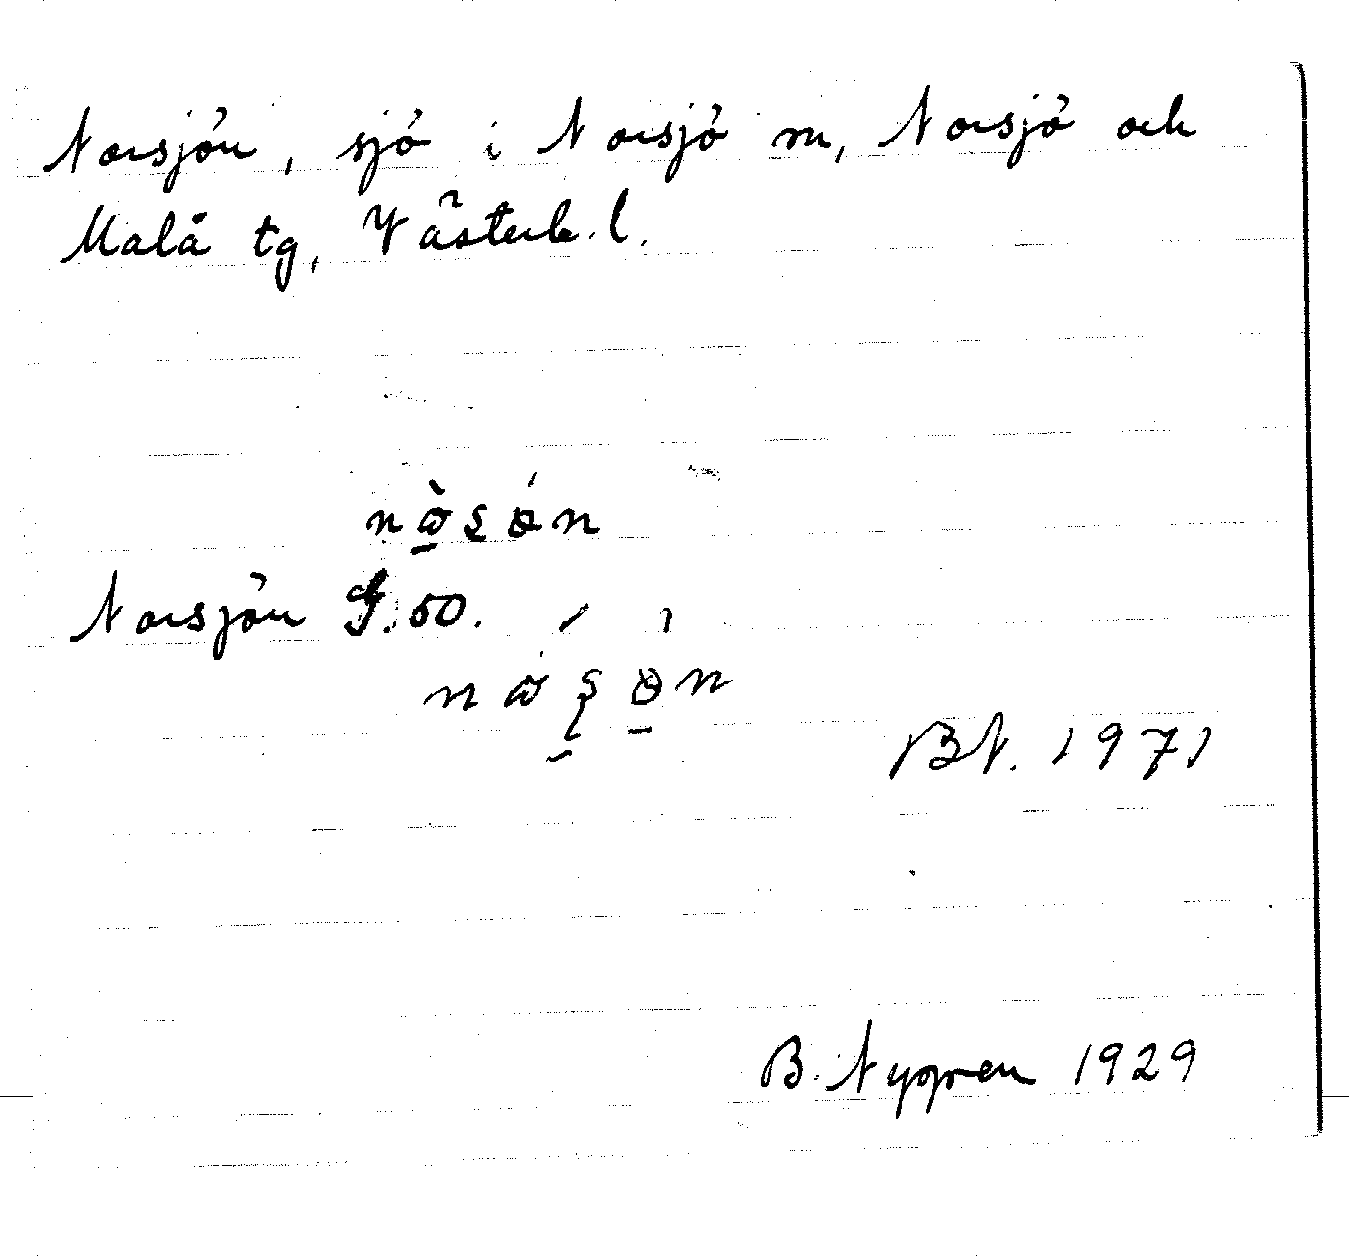 Norsjön, sjö i Norsjö sn, Norsjö och
Malå tg, Västerb. l.
Norsjön G. 50.
BN. 1971
B. Nygren 1929